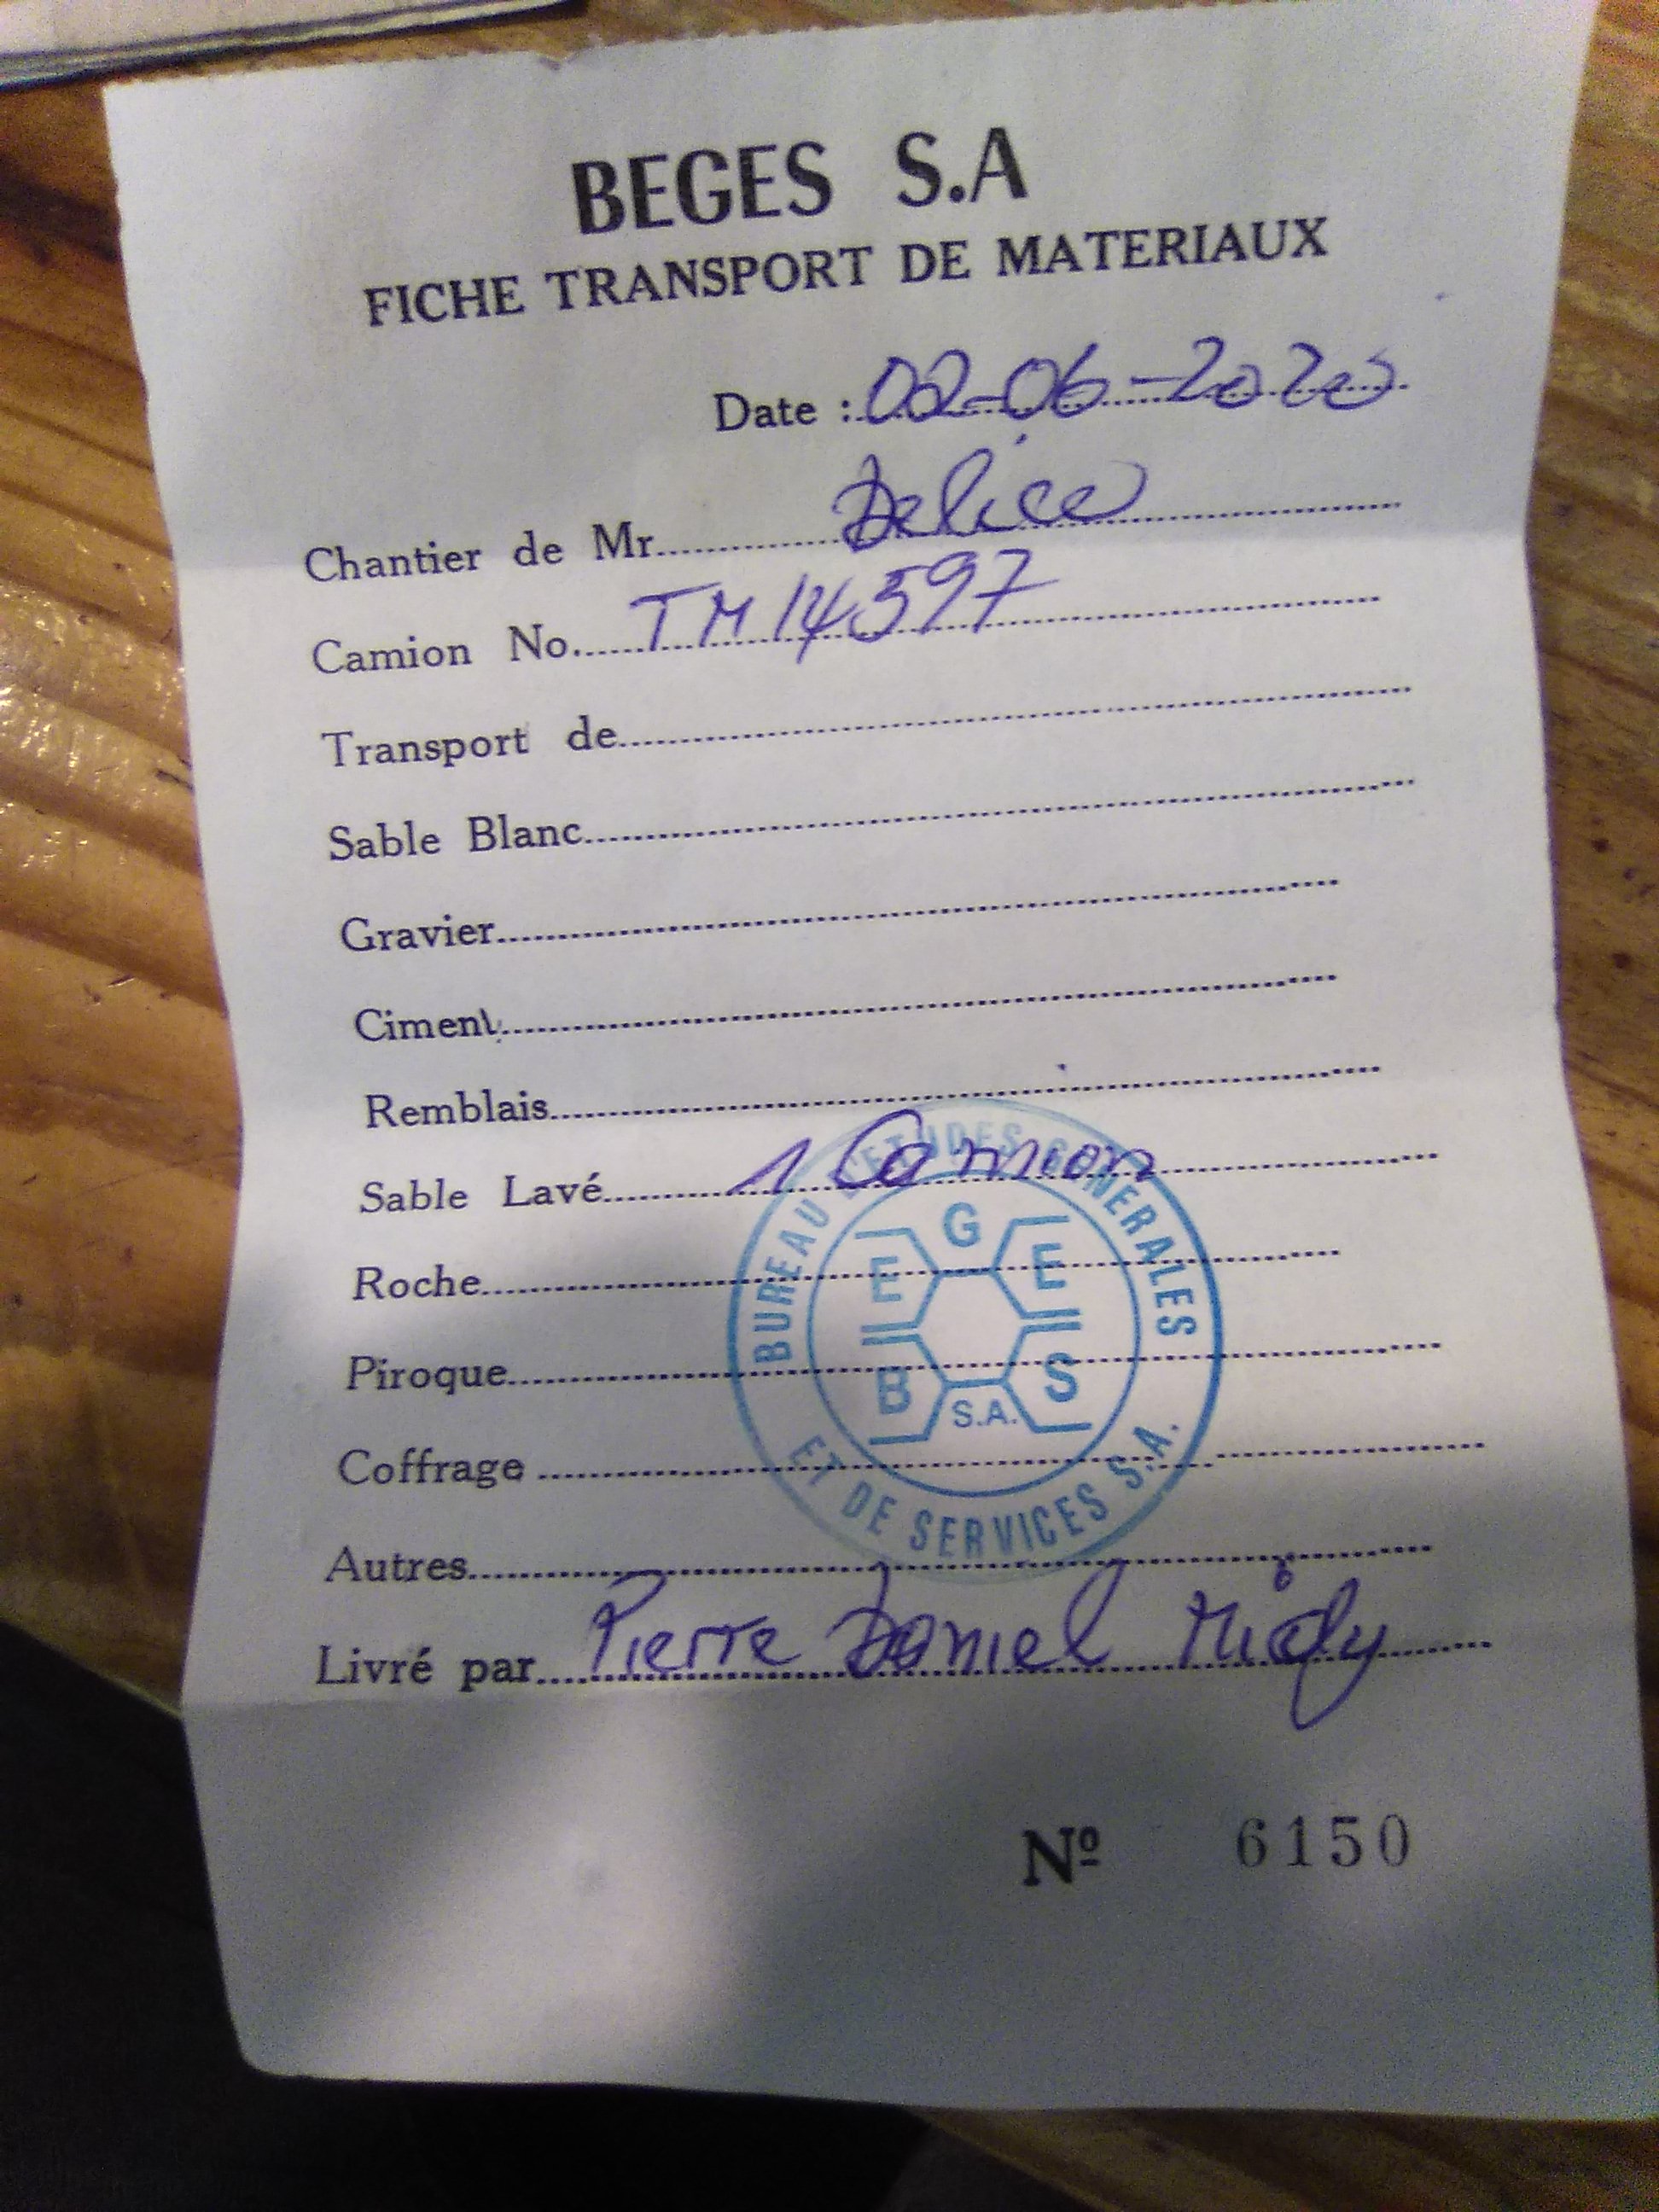 BEGES S.A
FICHE TRANSPORT DE MATERIAUX
Date : 02-06-2020
Chantier de Mr Delice
Camion No. TM 14597
Transport de
Sable Blanc
Gravier
Ciment
Remblais
Sable Lavé 1 Camion
Roche
Piroque
Coffrage
Autres
Livré par Pierre Daniel
Nº 6150
BUREAU D'ETUDES GENERALES
ET DE SERVICES S.A.
B E G E S
S.A.